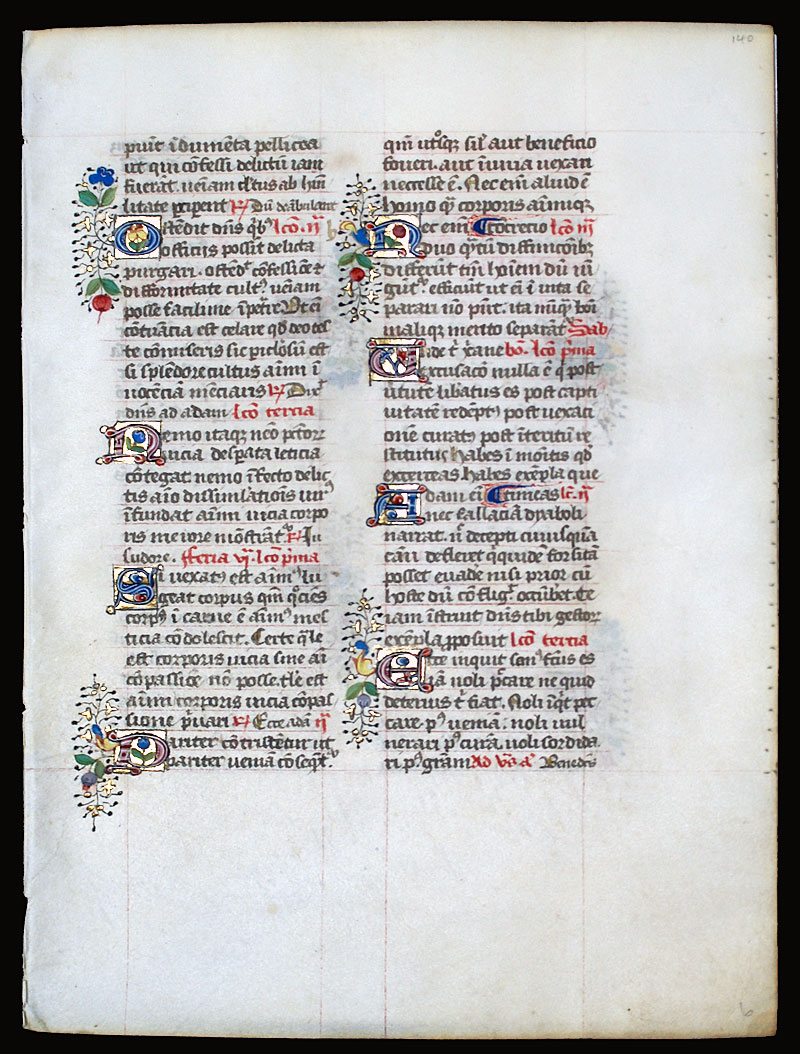 140
piūt īdumēta pellicea
ut qui cōfessi delictū iam
fuerat. ueniam
litate ꝑciperēt ℟ Dū deābularet
Ostēdit dn̄s qͥbꝰ lcō. ij
officiis possit delicta
purgari. ostēdͥ cōfessiōe
difformitate cultꝰ ueniam
posse facilime īpetrē Ut eī
cōtumacia est celare qd̄ deo
te cōmiseris sic piclosū est
si splēdore cultus aīmi ī
nocēciā mēciaris ℟ Dixͭ
dn̄s ad adam lcō tercia
Nemo itaqꝫ
uicia desꝑata leticia
cōtegat. nemo īfecto delic
tis aīo dissimilationis
īfundat aīmi uicia corpo
ris meiore mōstrātͬ ℟ In
sudore. fferia vj. lcō pͥma
Si uexatꝰ est aīmꝰ lu
geat corpus qm̄ qͦcies
corpꝰ ī carne ē aīmꝰ mes
ticia cōdolescit. Certe qͣle
est corporis uicia sine aī
cōpassiōe nō posse. tͣle est
aīmi corporis uicia cōpas
sione pͥuari ℟ Ecce adā ij
Pariter cōtristētur ut
pariter ueniam cōseqͣtͬ
qm̄ utͦsqꝫ sīlͬ aut beneficio
foueri. aut īiuria uexari
necesse ē. Nec eni aliud ē
homo qͣꝫ corporis aīmiqꝫ
Nec eni Cōcrecio lcō iij
duo diffinicōibꝫ
differūt tn̄ hoīem dū iū
gūtͬ efficiūt ut eī ī uita se
parari nō pn̄t. ita
maliqꝫ merito separātͬ Sab
Unde tͥ xͣane bō. lcō pͥma
excusacō nulla ē qͥ post
uitute libatus es post capti
uitatē redēptꝰ post uexati
onē curatꝰ post īteritū re
stitutus habes ī monitis qd̄
exerceas habes exēpla que
Adam eī C timeas lc̄. ij
nec fallaciā dyaboli
narrat. nͦ decepti cuiusquā
cāū defleret qͥ quidē forsitā
posset euadē nisi prior cū
hoste diū cōfligͬ occubet. Te
iam īstruit dn̄s tibi gestoꝝ
exēpla ꝓposuit lcō tercia
Ecce inquit sanꝰ fc̄us es
iā noli pͨcare ne quid
deterius tͥ fiat. Noli īqͥt pec
care pꝰ ueniā. noli uul
nerari pꝰ curā. noli sordida
ri pꝰ grām Ad Benedcͣ
6